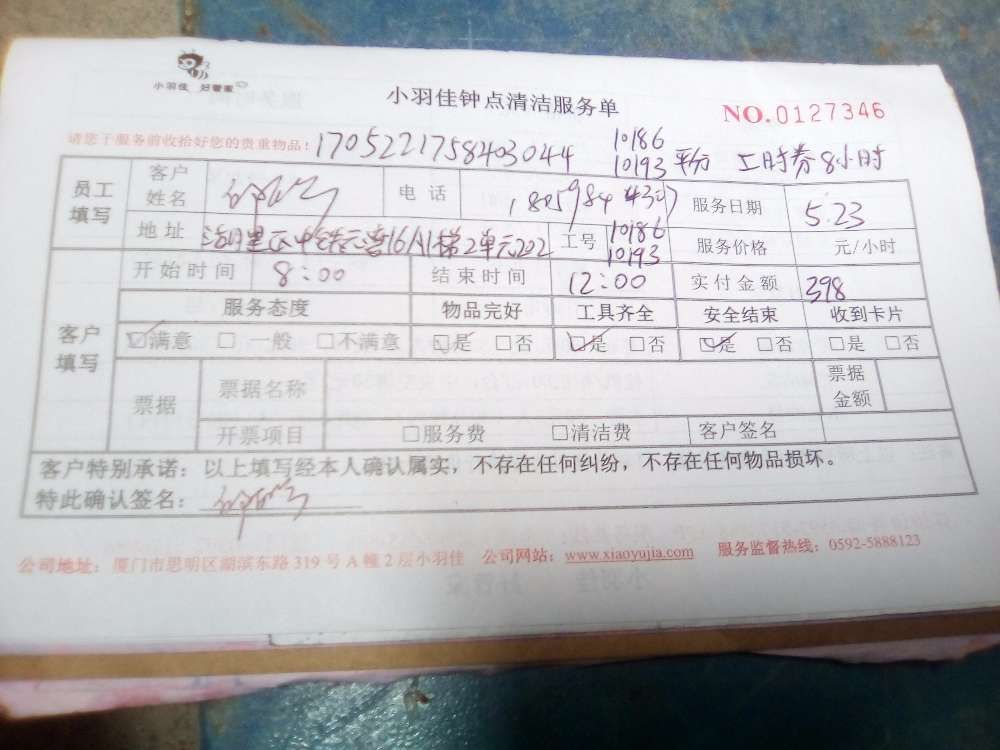 小羽佳 好管家
小羽佳钟点清洁服务单
NO.0127346
请您于服务前收拾好您的贵重物品:
1705221758403044
10186
10193 平分 工时券8小时
员工填写 客户姓名 电话 服务日期 5.23
地址 16 2单元202 工号 10186 10193 服务价格 元/小时
客户填写 开始时间 8:00 结束时间 12:00 实付金额 398
服务态度 物品完好 工具齐全 安全结束 收到卡片
☑满意 □一般 □不满意 ☑是 □否 ☑是 □否 ☑是 □否 □是 □否
票据 票据名称 票据金额
开票项目 □服务费 □清洁费 客户签名
客户特别承诺:以上填写经本人确认属实,不存在任何纠纷,不存在任何物品损坏。
特此确认签名:
公司地址:厦门市思明区湖滨东路319号A幢2层小羽佳 公司网站:www.xiaoyujia.com 服务监督热线:0592-5888123